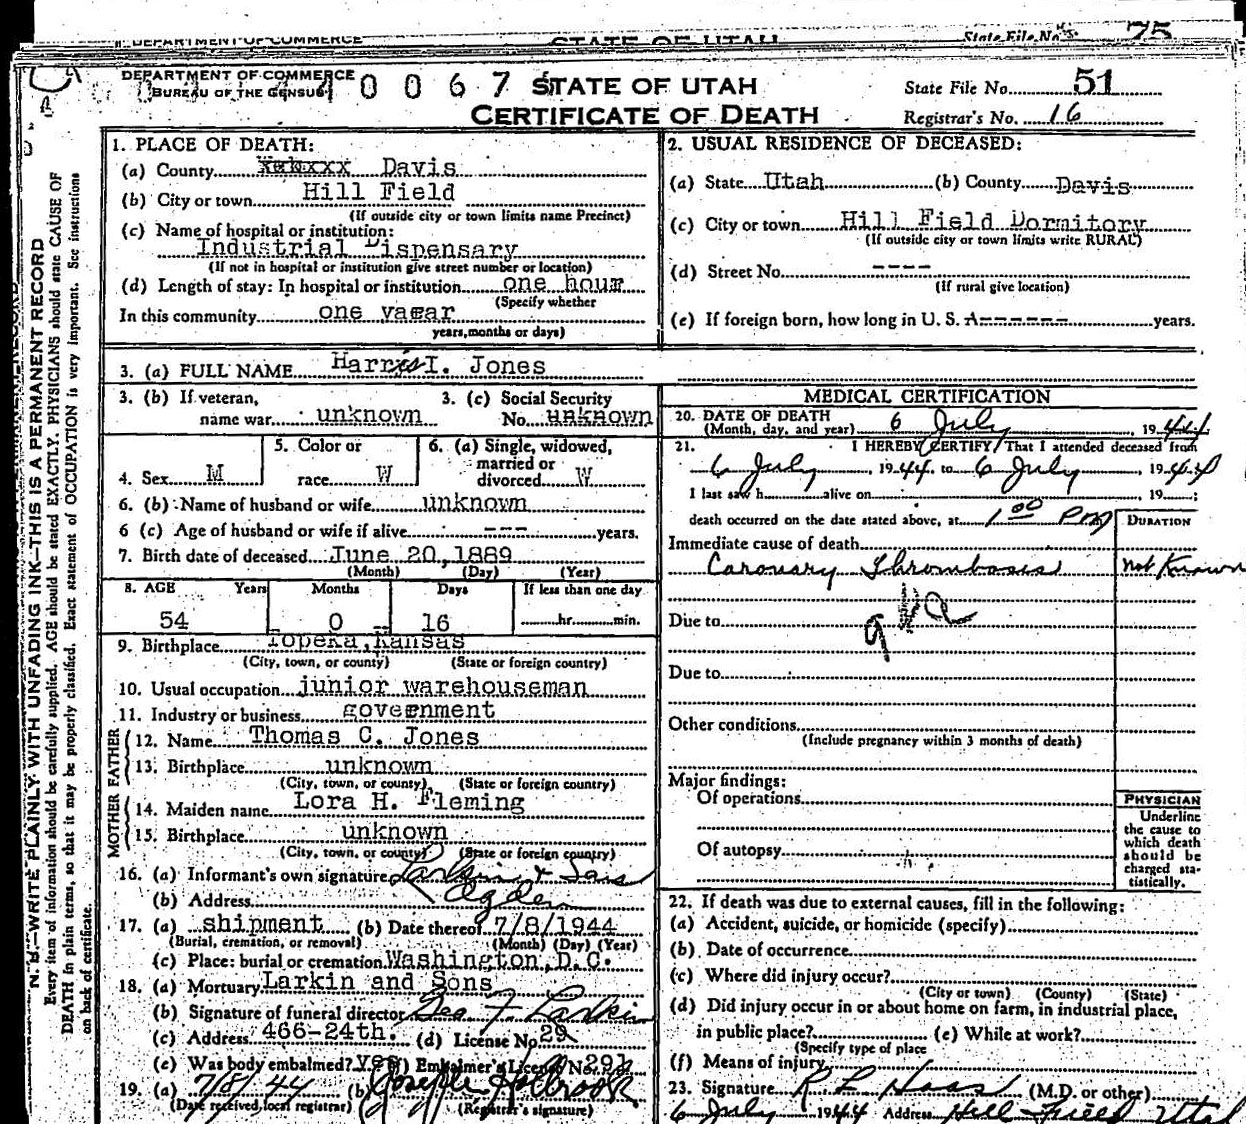 DEPARTMENT OF COMMERCE STATE OF UTAH State File No. 75
DEPARTMENT OF COMMERCE
BUREAU OF THE CENSUS
0 0 6 7
STATE OF UTAH
CERTIFICATE OF DEATH
State File No. 51
Registrar's No. 16
1. PLACE OF DEATH:
(a) County Davis
(b) City or town Hill Field
(If outside city or town limits name Precinct)
(c) Name of hospital or institution:
Industrial Dispensary
(If not in hospital or institution give street number or location)
(d) Length of stay: In hospital or institution one hour
(Specify whether
In this community one yaear
years, months or days)
2. USUAL RESIDENCE OF DECEASED:
(a) State Utah (b) County Davis
(c) City or town Hill Field Dormitory
(If outside city or town limits write RURAL)
(d) Street No. ----
(If rural give location)
(e) If foreign born, how long in U. S. A ------ years.
3. (a) FULL NAME Harris I. Jones
3. (b) If veteran, 3. (c) Social Security
name war unknown No. unknown
4. Sex M 5. Color or race W 6. (a) Single, widowed, married or divorced W
6. (b) Name of husband or wife unknown
6 (c) Age of husband or wife if alive --- years.
7. Birth date of deceased June 20, 1889
(Month) (Day) (Year)
8. AGE Years Months Days If less than one day
54 0 16 hr. min.
9. Birthplace Topeka, Kansas
(City, town, or county) (State or foreign country)
10. Usual occupation junior warehouseman
11. Industry or business government
FATHER
12. Name Thomas C. Jones
13. Birthplace unknown
(City, town, or county) (State or foreign country)
MOTHER
14. Maiden name Lora H. Fleming
15. Birthplace unknown
(City, town, or county) (State or foreign country)
16. (a) Informant's own signature Larkin & Sons
(b) Address Ogden
17. (a) shipment (b) Date thereof 7/8/1944
(Burial, cremation, or removal) (Month) (Day) (Year)
(c) Place: burial or cremation Washington, D.C.
18. (a) Mortuary Larkin and Sons
(b) Signature of funeral director Geo T Larkin
(c) Address 466-24th. (d) License No. 29
(e) Was body embalmed? yes (f) Embalmer's License No. 291
19. (a) 7/8/44 (b) Joseph Holbrook
(Date received local registrar) (Registrar's signature)
MEDICAL CERTIFICATION
20. DATE OF DEATH 6 July, 1944
(Month, day, and year)
21. I HEREBY CERTIFY, That I attended deceased from
6 July, 1944, to 6 July, 1944
I last saw h alive on , 19 ;
death occurred on the date stated above, at 1 00 PM DURATION
Immediate cause of death
Coronary Thrombosis not Known
Due to
Due to
Other conditions
(Include pregnancy within 3 months of death)
Major findings:
Of operations
Of autopsy
PHYSICIAN
Underline
the cause to
which death
should be
charged sta-
tistically.
22. If death was due to external causes, fill in the following:
(a) Accident, suicide, or homicide (specify)
(b) Date of occurrence
(c) Where did injury occur?
(City or town) (County) (State)
(d) Did injury occur in or about home on farm, in industrial place,
in public place? (e) While at work?
(Specify type of place
(f) Means of injury
23. Signature R L Haas (M.D. or other)
6 July 1944 Address Hill Field Utah
N. B.—WRITE PLAINLY WITH UNFADING INK—THIS IS A PERMANENT RECORD
Every item of information should be carefully supplied. AGE should be stated EXACTLY. PHYSICIANS should state CAUSE OF
DEATH in plain terms, so that it may be properly classified. Exact statement of OCCUPATION is very important. See instructions
on back of certificate.